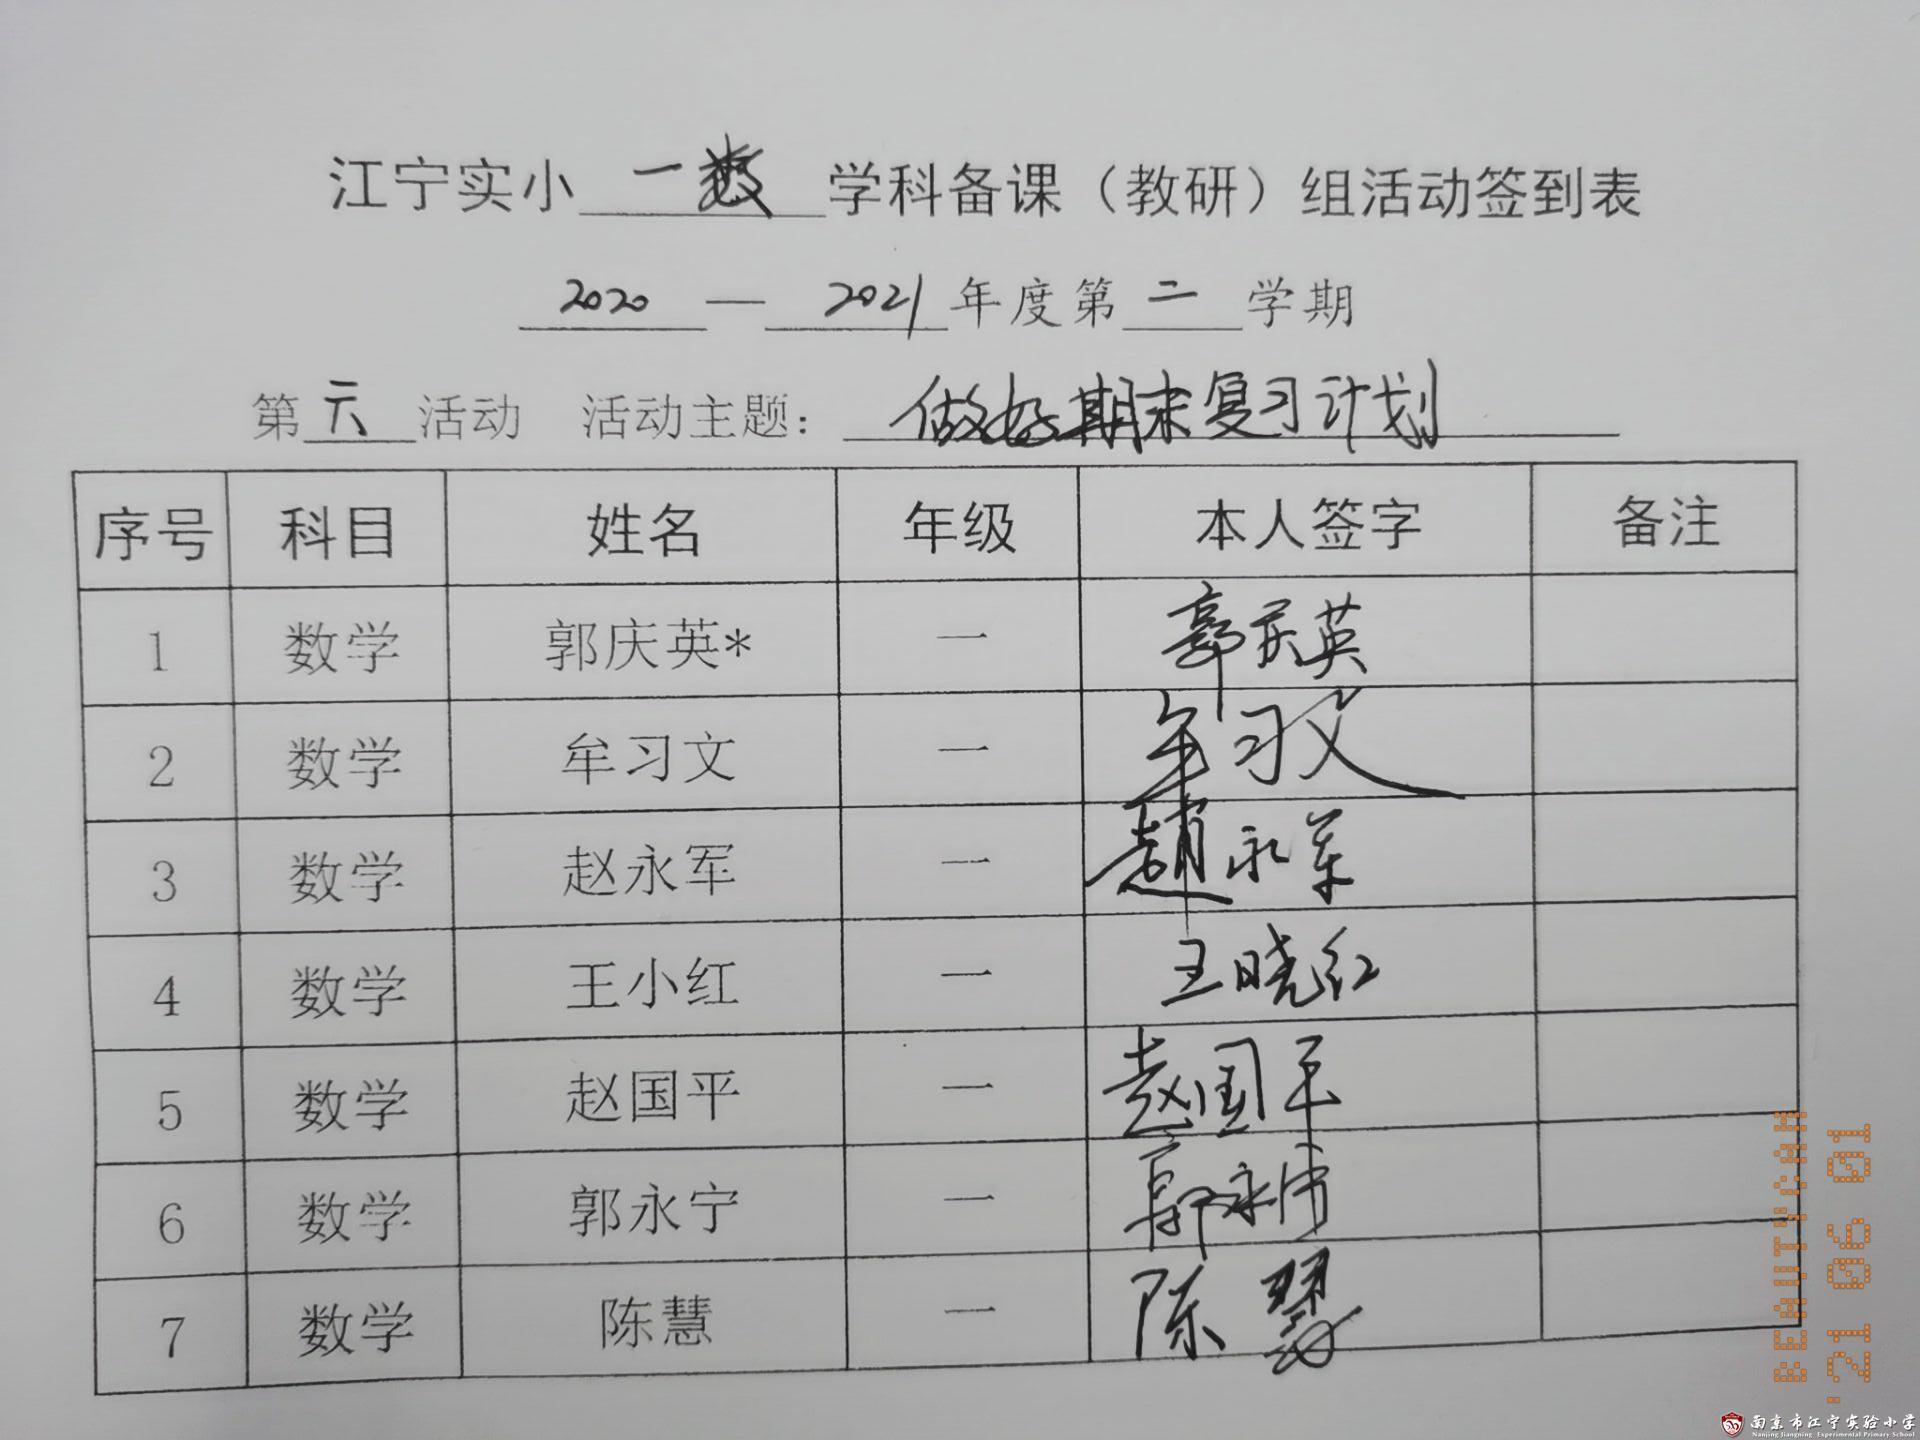 江宁实小 一数 学科备课（教研）组活动签到表
2020 — 2021 年度第 二 学期
第 六 活动 活动主题： 做好期末复习计划
序号 科目 姓名 年级 本人签字 备注
1 数学 郭庆英* 一 郭庆英
2 数学 牟习文 一 牟习文
3 数学 赵永军 一 趙永军
4 数学 王小红 一 王晓红
5 数学 赵国平 一 赵国平
6 数学 郭永宁 一 郭永宁
7 数学 陈慧 一 陈慧
南京市江宁实验小学
Nanjing Jiangning Experimental Primary School